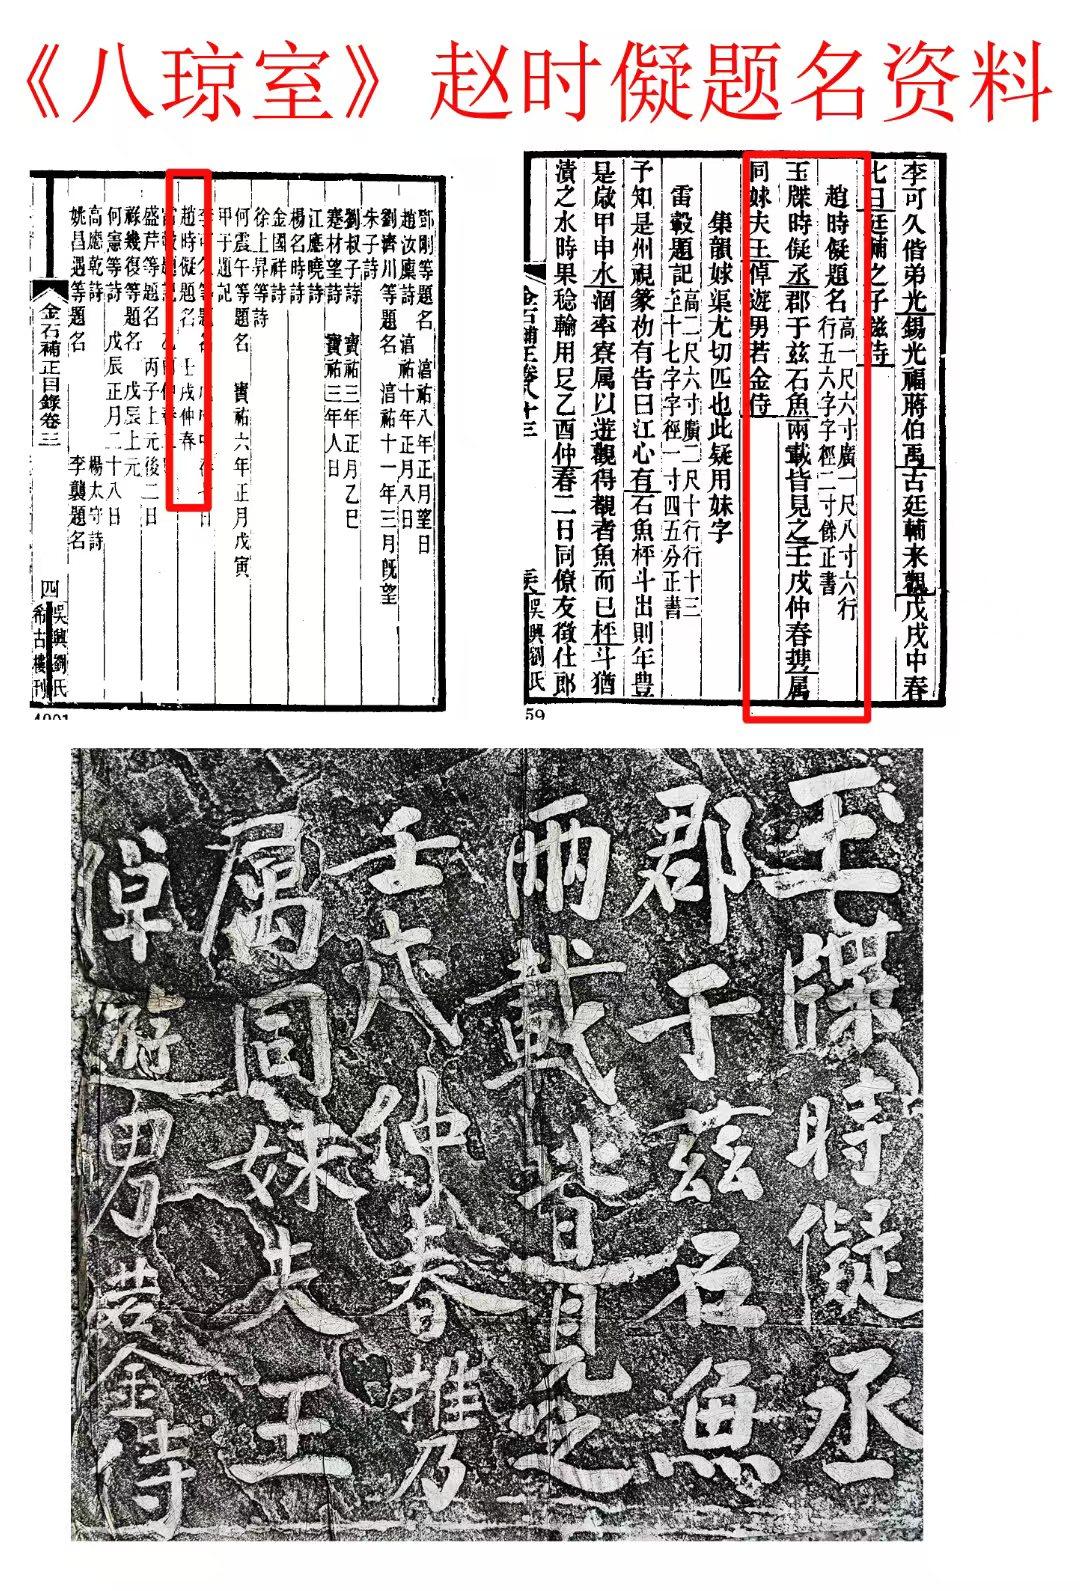 《八琼室》赵时儗题名资料
鄧剛等題名 淳祐八年正月望日
趙汝廩詩 淳祐十年正月八日
劉濟川等題名 淳祐十一年三月既望
朱子詩
劉叔子詩 寶祐三年正月乙巳
蹇材望詩 寶祐三年人日
江應曉詩
楊名時詩
金國祥詩
徐上昇等詩
何震午等題名 寶祐六年正月戊寅
甲守題記
趙時儗題名 壬戌仲春
盛芹等題名 丙子上元後二日
祥幾復等題名 戊辰上元
何憲等詩 戊辰正月二十八日
高應乾詩 楊太守詩
姚昌遇等題名 李襲題名
金石補正目錄卷三
四
吳興劉氏
希古樓刊
李可久偕弟光錫光福蔣伯禹古廷輔來觀戊戌中春
七日廷輔之子鎡侍
趙時儗題名 高一尺六寸廣一尺八寸六行
行五六字字徑二寸餘正書
玉牒時儗丞郡于兹石魚兩載皆見之壬戌仲春携属
同妹夫王倬遊男若金侍
集韻㛏渠尤切匹也此疑用妹字
雷轂題記 高二尺六寸廣二尺十行行十三
至十七字字徑一寸四五分正書
子知是州視篆初有告曰江心有石魚枰斗出則年豊
是歲甲申水涸率寮属以遊觀得覩者魚而已枰斗猶
漬之水時果稔輸用足乙酉仲春二日同僚友徵仕郎
金石補正卷八十三
吳興劉氏
59
玉牒時儗丞
郡于兹石魚
兩載皆見之
壬戌仲春携
属同妹夫王
倬遊男若金侍